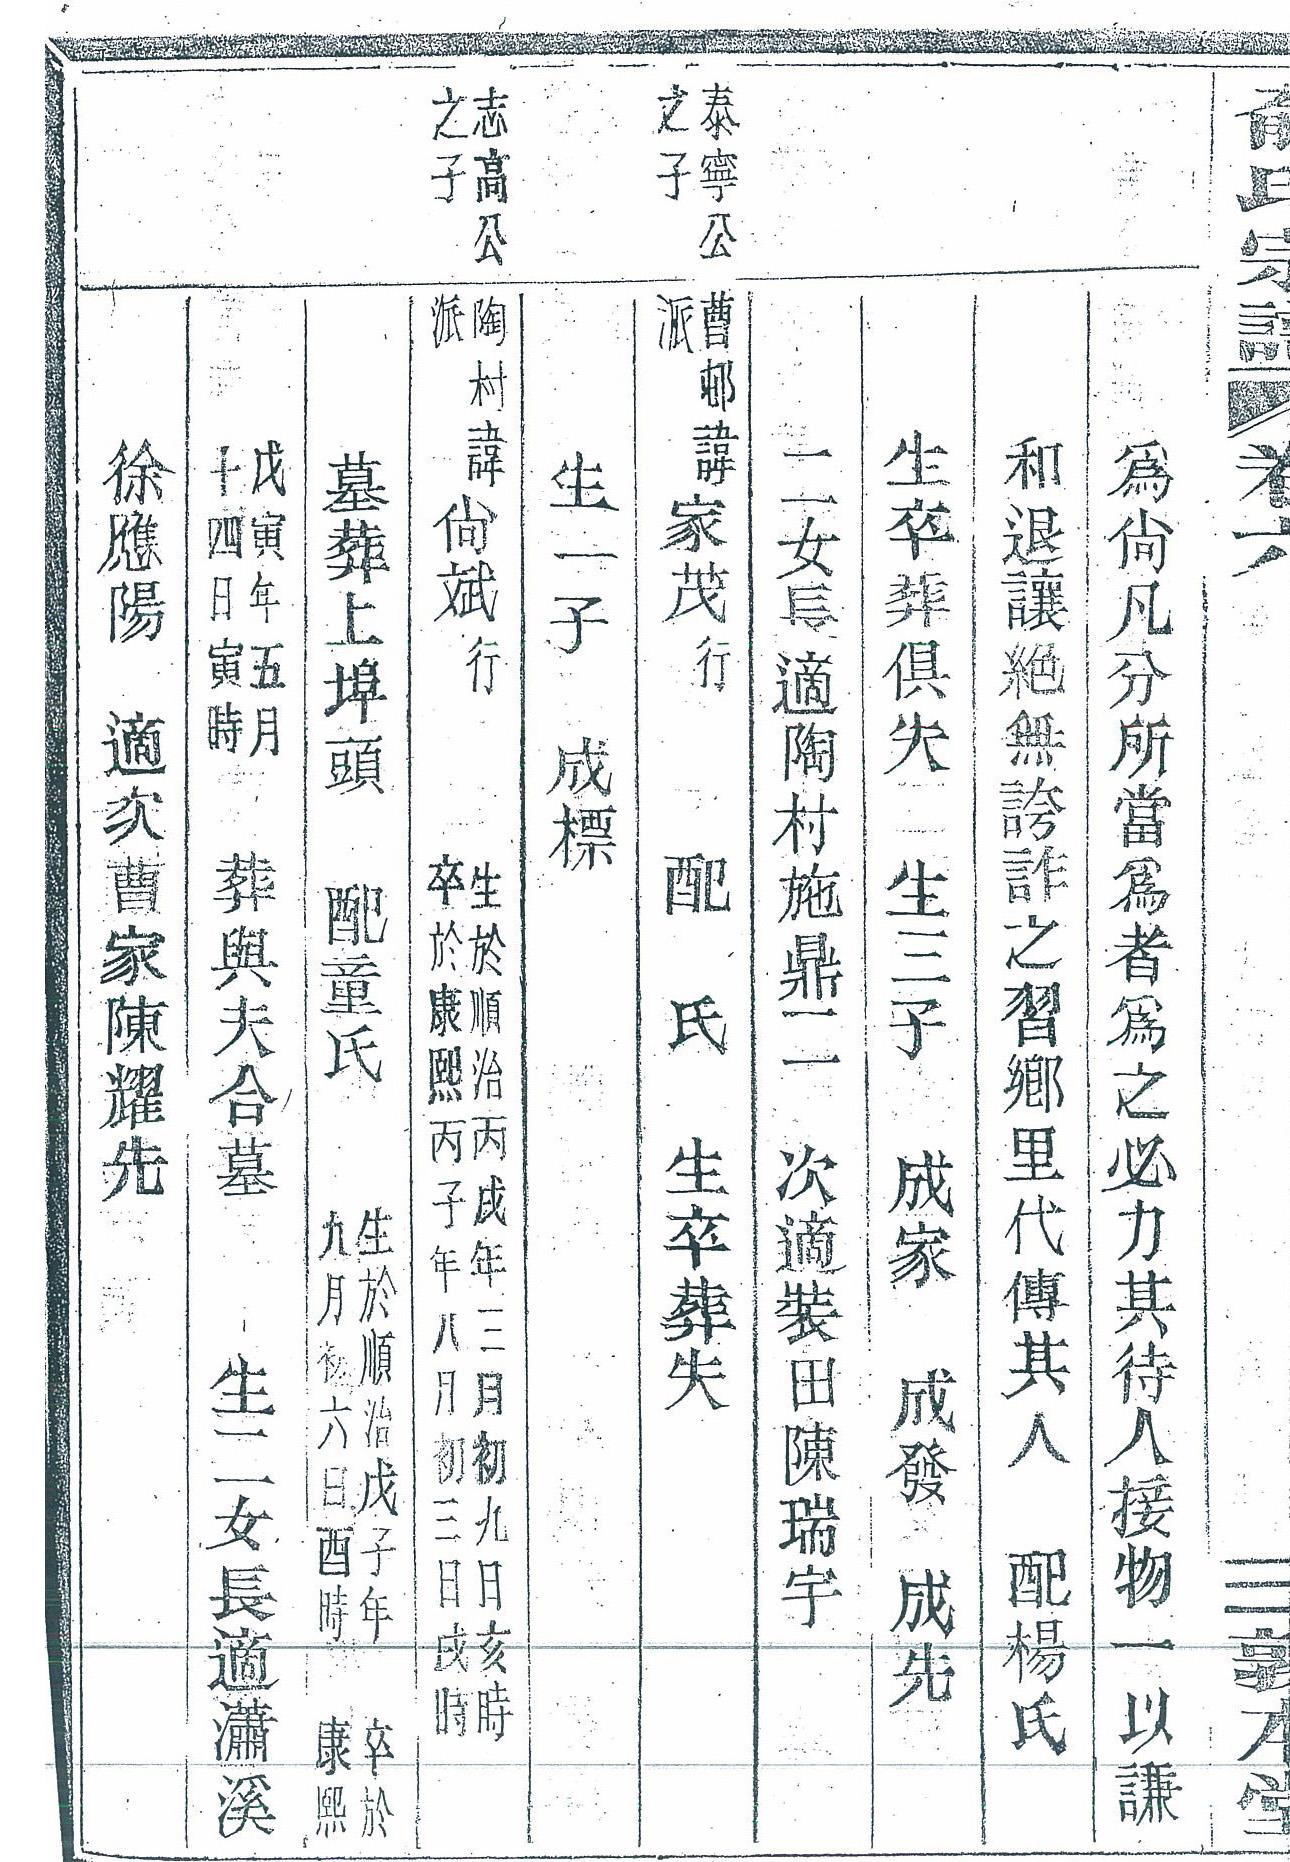 俞氏宗譜 卷六 三 敦本堂
爲尙凡分所當爲者爲之必力其待人接物一以謙
和退讓絕無誇詐之習鄉里代傳其人 配楊氏
生卒葬俱失 生三子 成家 成發 成先
二女長適陶村施鼎二 次適裝田陳瑞宇
泰寧公
之子
曹邨諱家茂行 配 氏 生卒葬失
派
生一子 成標
志高公
之子
陶村諱尙斌行
派
生於順治丙戌年三月初九日亥時
卒於康熙丙子年八月初三日戌時
墓葬上埠頭 配童氏
生於順治戊子年
九月初六日酉時
卒於
康熙
戊寅年五月
十四日寅時
葬與夫合墓 生二女長適瀟溪
徐應陽 適次曹家陳耀先